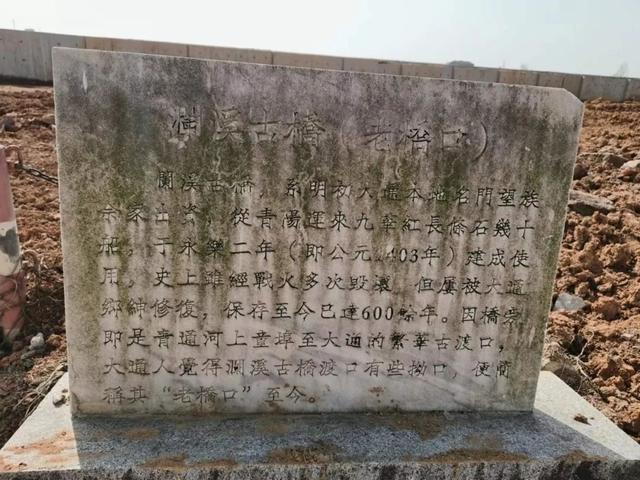 溪古橋（老橋口）
瀾溪古橋，系明初大通本地名門望族
佘家出资，從青陽運來九華紅長條石幾十
船，于永樂二年（即公元1403年）建成使
用，史上雖經戰火多次毀壞，但屢被大通
鄉紳修復，保存至今已達600餘年。因橋旁
即是青通河上童埠至大通的繁華古渡口，
大通人覺得瀾溪古橋渡口有些拗口，便簡
稱其“老橋口”至今。